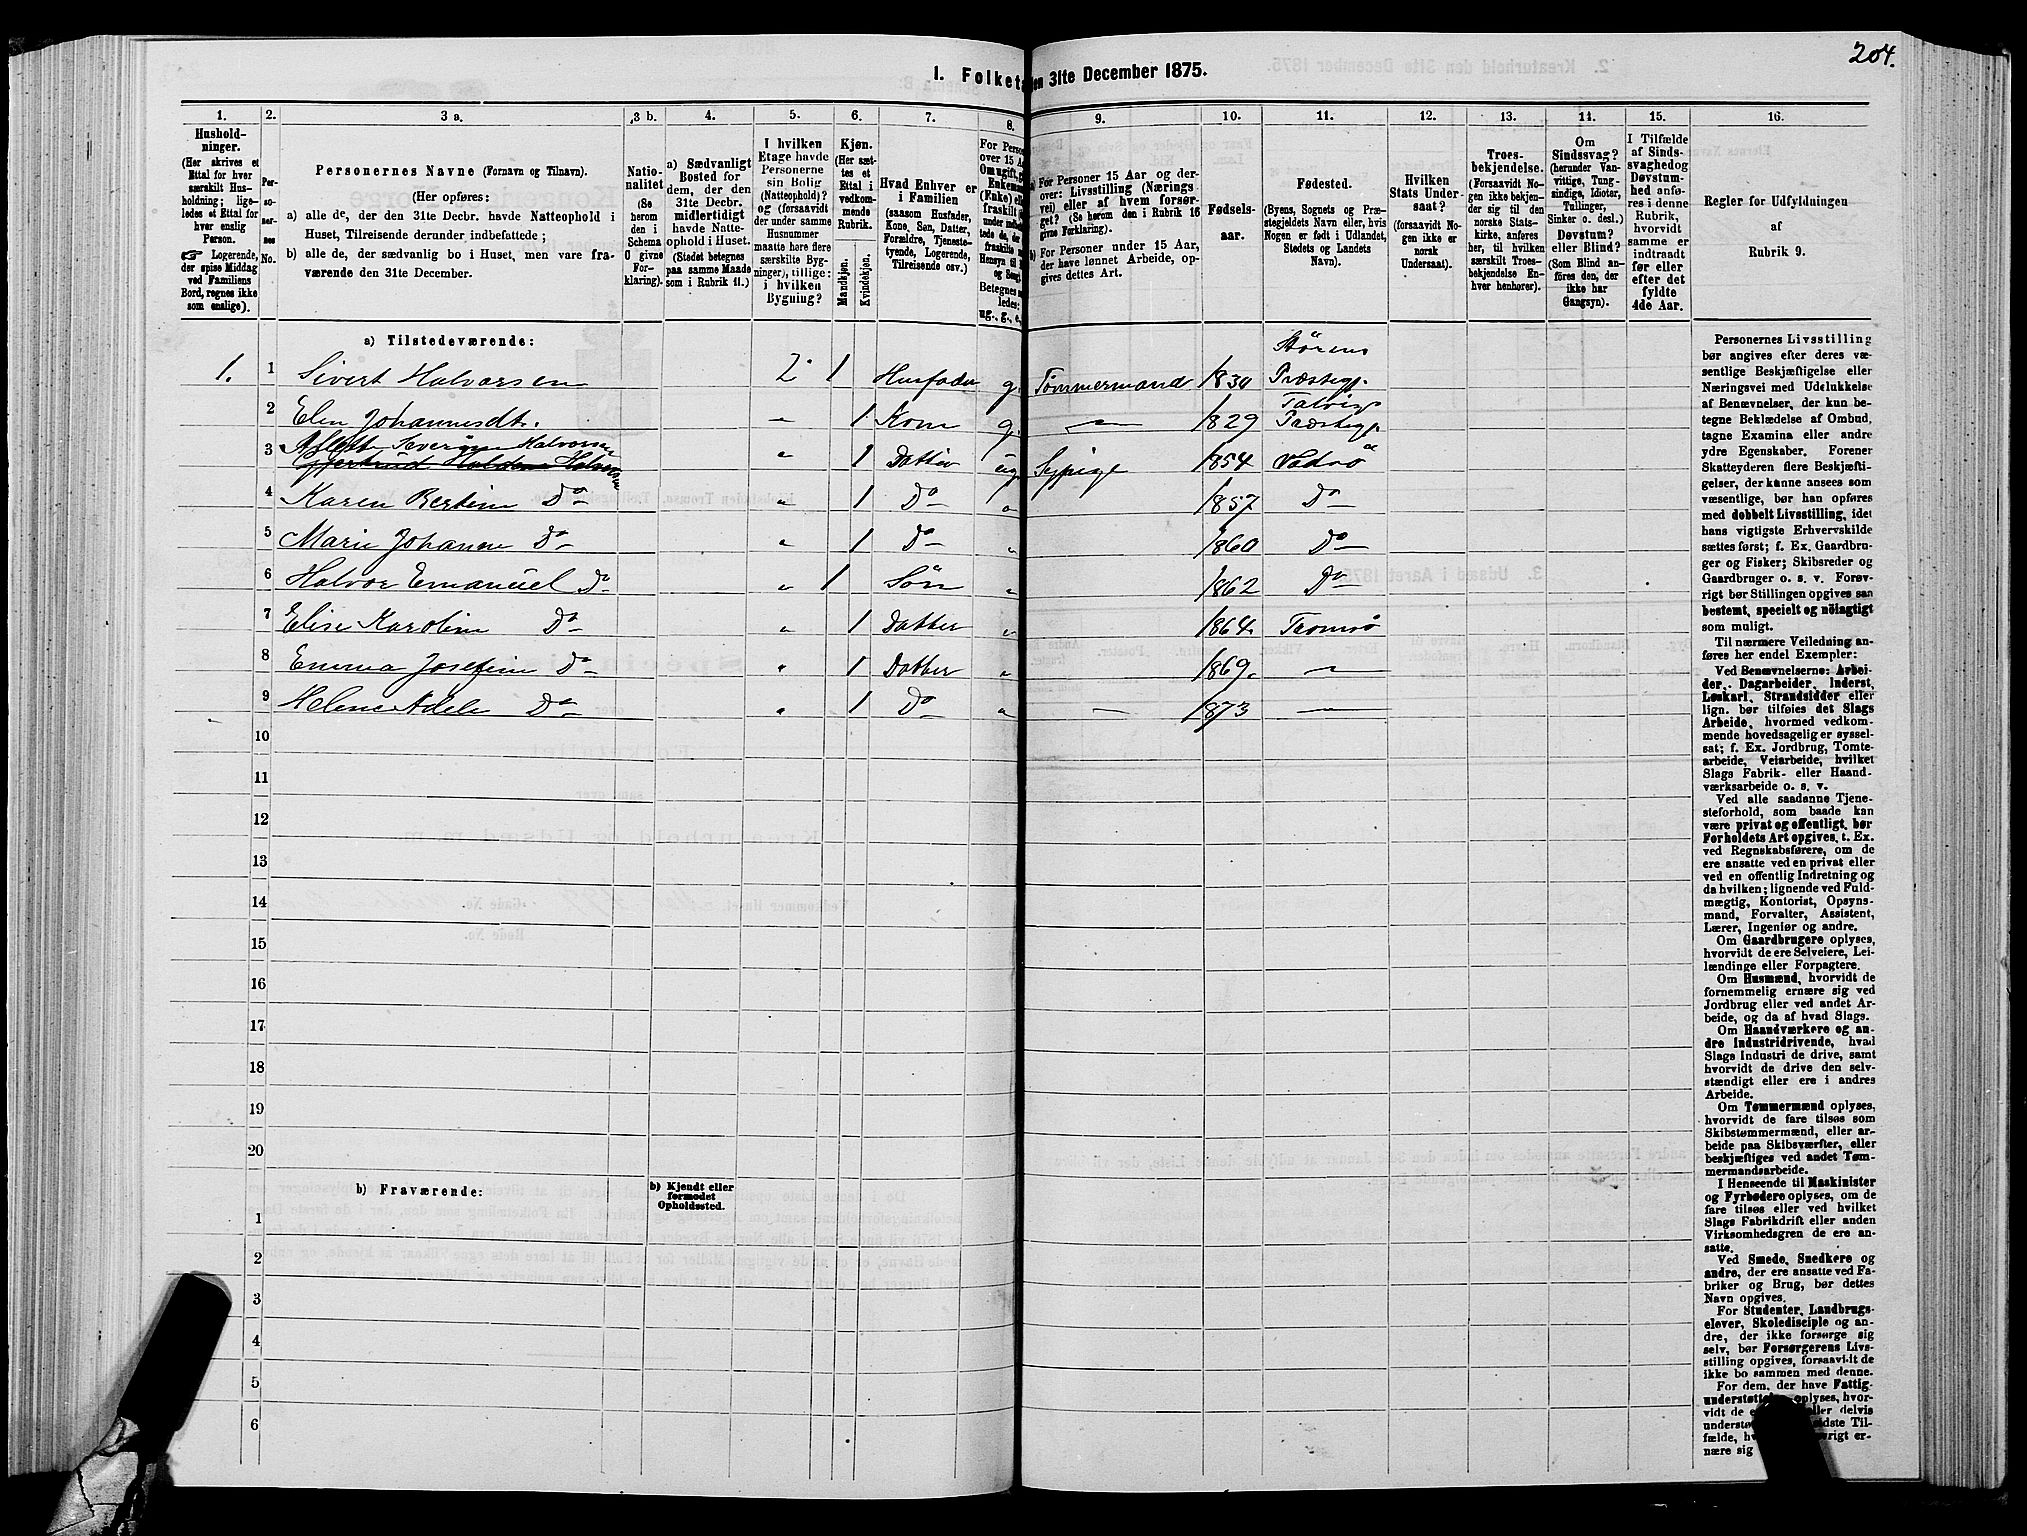 204.
1. Folketæ
den 31te December 1875.
1. 2. 3 a. 3 b. 4. 5. 6. 7. 8. 9. 10. 11. 12. 13. 14. 15. 16.
Hushold-
ninger.
(Her skrives et
Ettal for hver
særskilt Hus-
holdning; lige-
ledes et Ettal for
hver enslig
Person.
☞ Logerende,
der spise Middag
ved Familiens
Bord, regnes ikke
som enslige).
Per-
so-
ner-
nes
No.
Personernes Navne (Fornavn og Tilnavn).
(Her opføres:
a) alle de, der den 31te Decbr. havde Natteophold i
Huset, Tilreisende derunder indbefattede;
b) alle de, der sædvanlig bo i Huset, men vare fra-
værende den 31te December.
Natio-
nalitet
(Se
herom
den i
Schema
O givne
For-
klaring).
a) Sædvanligt
Bosted for
dem, der den
31te Decbr.
midlertidigt
havde Natte-
ophold i Huset.
(Stedet betegnes
paa samme Maade
som i Rubrik 11.)
I hvilken
Etage havde
Personerne
sin Bolig
(Natteophold)?
og (forsaavidt
der under samme
Husnummer
maatte høre flere
særskilte Byg-
ninger), tillige:
i hvilken
Bygning?
Kjøn.
(Her sæt-
tes et
Ettal i
vedkom-
mende
Rubrik.
Mandkjøn.
Kvindekjøn.
Hvad Enhver er
i Familien
(saasom Husfader,
Kone, Søn, Datter,
Forældre, Tjeneste-
tyende, Logerende,
Tilreisende osv.)
For Perso
over 15 Aa
Om ugift, g
Enkema
(Enke) el
fraskilt
Betegnes s
ledes:
ug., g., e.,
a) For Personer 15 Aar og der-
over: Livsstilling (Nærings-
vei) eller af hvem forsør-
get? (Se herom den i Rubrik 16
givne Forklaring).
b) For Personer under 15 Aar,
der have lønnet Arbeide, op-
gives dettes Art.
Fødsels-
aar.
Fødested.
(Byens, Sognets og Præ-
stegjeldets Navn eller, hvis
Nogen er født i Udlandet,
Stedets og Landets
Navn).
Hvilken
Stats Under-
saat?
(forsaavidt No-
gen ikke er
norsk
Undersaat).
Troes-
bekjendelse.
(Forsaavidt No-
gen ikke bekjen-
der sig til den
norske Stats-
kirke, anføres
her, til hvilken
særskilt Troes-
bekjendelse En-
hver henhører).
Om
Sindssvag?
(herunder Van-
vittige, Tung-
sindige, Idioter,
Tullinger,
Sinker o. desl.)
Døvstum?
eller Blind?
(Som Blind an-
føres den, der
ikke har
Gangsyn).
I Tilfælde
af Sinds-
svaghedog
Døvstum-
hed anfø-
res i denne
Rubrik,
hvorvidt
samme er
indtraadt
før eller
efter det
fyldte
4de Aar.
Regler for Udfyldningen
af
Rubrik 9.
a) Tilstedeværende:
1. 1 Sivert Halvorsen 2 1 Husfader g. Tømmermand 1830 Störens Præstegj.
2 Elen Johannesdt. " 1 Kone g. — 1829 Talvigs Præstegj.
3 Severine Halvorsen " 1 Datter ug Sypige 1854 Vadsö
4 Karen Bertine Do " 1 Do " 1857 Do
5 Marie Johanne Do " 1 Do " 1860 Do
6 Halvor Emanuel Do " 1 Sön " 1862 Do
7 Elise Karoline Do " 1 Datter " 1864. Tromsö
8 Emma Josefine Do " 1 Datter " 1869. —
9 Helene Adele Do " 1 Do " — 1873 —
10
11
12
13
14
15
16
17
18
19
20
b) Fraværende:
b) Kjendt eller
formodet
Opholdssted.
1
2
3
4
5
6
Personernes Livsstilling
bør angives efter deres væ-
sentlige Beskjæftigelse eller
Næringsvei med Udelukkelse
af Benævnelser, der kun be-
tegne Beklædelse af Ombud,
tagne Examina eller andre
ydre Egenskaber. Forener
Skatteyderen flere Beskjæfti-
gelser, der kunne ansees som
væsentlige, bør han opføres
med dobbelt Livsstilling, idet
hans vigtigste Erhvervskilde
sættes først; f. Ex. Gaardbru-
ger og Fisker; Skibsreder og
Gaardbruger o. s. v. Forøv-
rigt bør Stillingen opgives saa
bestemt, specielt og nöiagtigt
som muligt.
Til nærmere Veiledning an-
føres her endel Exempler:
Ved Benævnelserne: Arbei-
der, Dagarbeider, Inderst,
Løskarl, Strandsidder eller
lign. bør tilføies det Slags
Arbeide, hvormed vedkom-
mende hovedsagelig er syssel-
sat; f. Ex. Jordbrug, Tomte-
arbeide, Veiarbeide, hvilket
Slags Fabrik- eller Haand-
værksarbeide o. s. v.
Ved alle saadanne Tjene-
steforhold, som baade kan
være privat og offentligt, bør
Forholdets Art opgives, t. Ex.
ved Regnskabsførere, om de
ere ansatte ved en privat eller
ved en offentlig Indretning og
da hvilken; lignende ved Fuld-
mægtig, Kontorist, Opsyns-
mand, Forvalter, Assistent,
Lærer, Ingeniør og andre.
Om Gaardbrugere oplyses,
hvorvidt de ere Selveiere, Lei-
lændinge eller Forpagtere.
Om Husmænd, hvorvidt de
fornemmelig ernære sig ved
Jordbrug eller ved andet Ar-
beide, og da af hvad Slags.
Om Haandværkere og an-
dre Industridrivende, hvad
Slags Industri de drive, samt
hvorvidt de drive den selv-
stændigt eller ere i andres
Arbeide.
Om Tømmermænd oplyses,
hvorvidt de fare tilsøs som
Skibstømmermænd, eller ar-
beide paa Skibsværfter, eller
beskjæftiges ved andet Tøm-
mermandsarbeide.
I Henseende til Maskinister
og Fyrbødere oplyses, om de
fare tilsøs eller ved hvilket
Slags Fabrikdrift eller anden
Virksomhedsgren de ere an-
satte.
Ved Smede, Snedkere og
andre, der ere ansatte ved Fa-
briker og Brug, bør dettes
Navn opgives.
For Studenter, Landbrugs-
elever, Skoledisciple og an-
dre, der ikke forsørge sig
selv, bør Forsørgerens Livs-
stilling opgives, forsaavidt de
ikke bo sammen med denne.
For dem, der have Fattig-
understøttelse oplyses, hvor-
vidt de eller delvis
underst sidste Til-
fælde, hv vrigt er-
nære sig